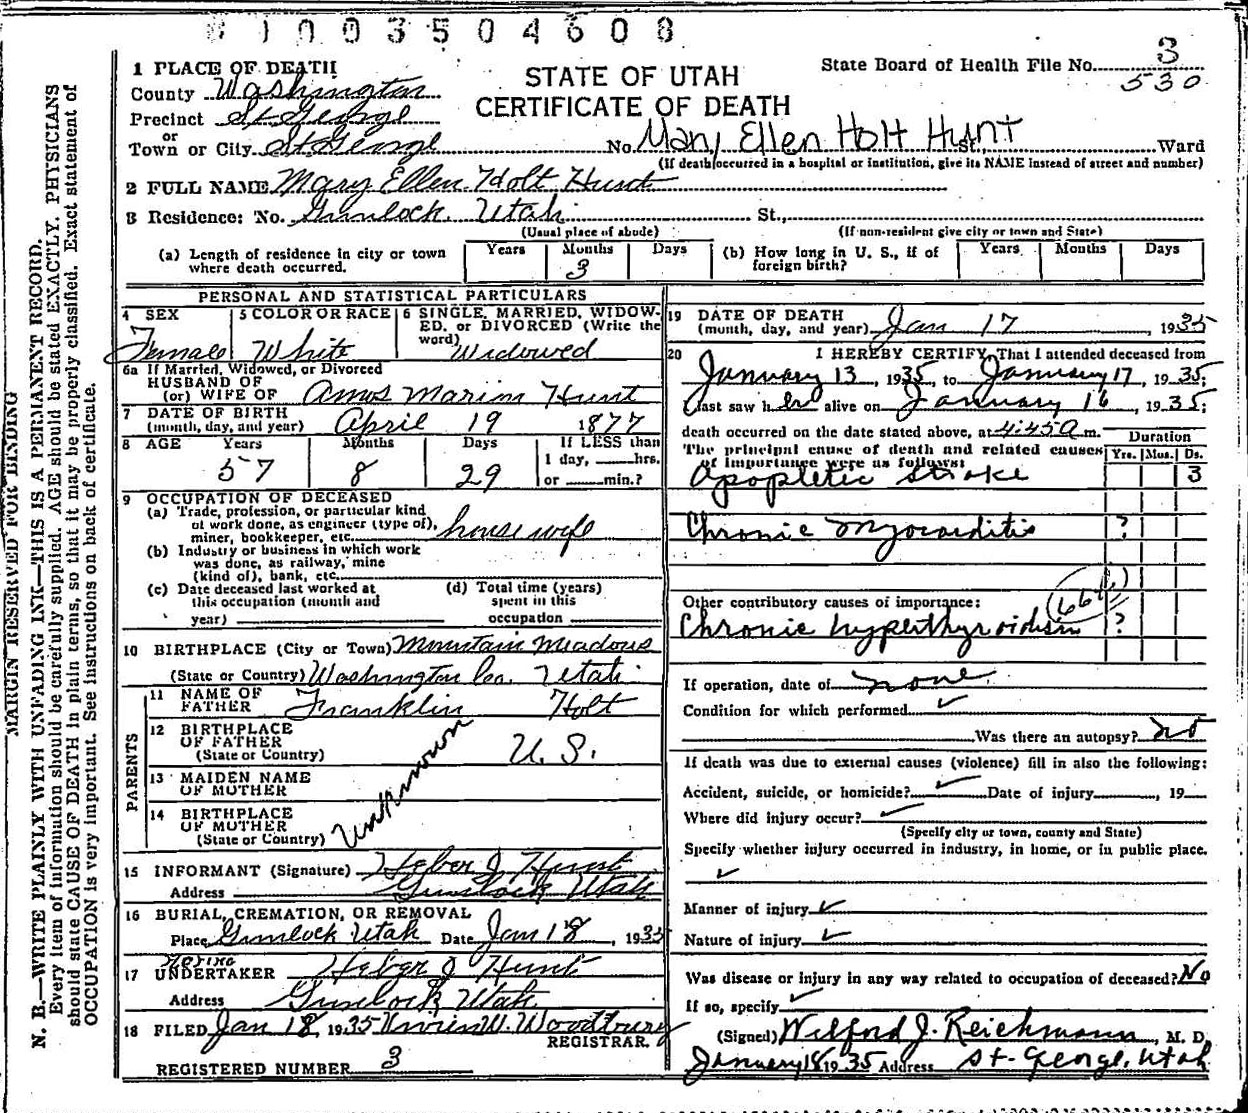 1003504608
1 PLACE OF DEATH
County Washington
Precinct St George
or
Town or City St George
STATE OF UTAH
CERTIFICATE OF DEATH
State Board of Health File No. 3
530
No. Mary Ellen Holt Hunt St., Ward
(If death occurred in a hospital or institution, give its NAME instead of street and number)
2 FULL NAME Mary Ellen Holt Hunt
3 Residence: No. Gunlock Utah St.,
(Usual place of abode) (If non-resident give city or town and State)
(a) Length of residence in city or town where death occurred. Years Months 3 Days
(b) How long in U. S., if of foreign birth? Years Months Days
PERSONAL AND STATISTICAL PARTICULARS
4 SEX Female
5 COLOR OR RACE White
6 SINGLE, MARRIED, WIDOWED, or DIVORCED (Write the word) Widowed
6a If Married, Widowed, or Divorced
HUSBAND OF
(or) WIFE OF Amos Marion Hunt
7 DATE OF BIRTH
(month, day, and year) April 19 1877
8 AGE Years 57 Months 8 Days 29 If LESS than
1 day, hrs.
or min.?
9 OCCUPATION OF DECEASED
(a) Trade, profession, or particular kind
of work done, as engineer (type of),
miner, bookkeeper, etc. housewife
(b) Industry or business in which work
was done, as railway, mine
(kind of), bank, etc.
(c) Date deceased last worked at
this occupation (month and
year)
(d) Total time (years)
spent in this
occupation
10 BIRTHPLACE (City or Town) Mountain Meadows
(State or Country) Washington Co. Utah
PARENTS
11 NAME OF
FATHER Franklin Holt
12 BIRTHPLACE
OF FATHER
(State or Country) U. S.
13 MAIDEN NAME
OF MOTHER
14 BIRTHPLACE
OF MOTHER
(State or Country)
Unknown
15 INFORMANT (Signature) Heber J. Hunt
Address Gunlock Utah
16 BURIAL, CREMATION, OR REMOVAL
Place Gunlock Utah Date Jan 18, 1935
Acting
17 UNDERTAKER Heber J Hunt
Address Gunlock Utah
18 FILED Jan 18, 1935 Vivien W. Woodbury
REGISTRAR.
REGISTERED NUMBER 3
19 DATE OF DEATH
(month, day, and year) Jan 17, 1935
20 I HEREBY CERTIFY, That I attended deceased from
January 13, 1935, to January 17, 1935;
I last saw her alive on January 16, 1935;
death occurred on the date stated above, at 4:45 a m.
The principal cause of death and related causes
of importance were as follows:
Duration
Yrs. Mos. Ds.
Apopletic stroke 3
Chronic Myocarditis ?
Other contributory causes of importance:
Chronic hyperthyroidism ?
If operation, date of none
Condition for which performed ✓
Was there an autopsy? no
If death was due to external causes (violence) fill in also the following:
Accident, suicide, or homicide? ✓ Date of injury , 19
Where did injury occur? ✓
(Specify city or town, county and State)
Specify whether injury occurred in industry, in home, or in public place.
✓
Manner of injury ✓
Nature of injury ✓
Was disease or injury in any way related to occupation of deceased? No
If so, specify ✓
(Signed) Wilford J. Reichmann, M. D.
January 18 1935 Address St. George, Utah
MARGIN RESERVED FOR BINDING
N. B.—WRITE PLAINLY WITH UNFADING INK—THIS IS A PERMANENT RECORD.
Every item of information should be carefully supplied. AGE should be stated EXACTLY. PHYSICIANS
should state CAUSE OF DEATH in plain terms, so that it may be properly classified. Exact statement of
OCCUPATION is very important. See instructions on back of certificate.